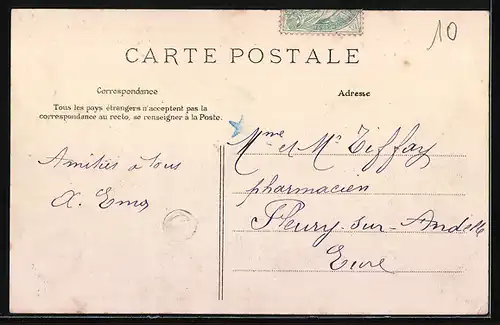 10
CARTE POSTALE
Correspondance
Adresse
Tous les pays étrangers n'acceptent pas la
correspondance au recto, se renseigner à la Poste.
Mme et Mr Tiffay
Amitiés à tous
pharmacien
Fleury-sur-Andelle
Eure